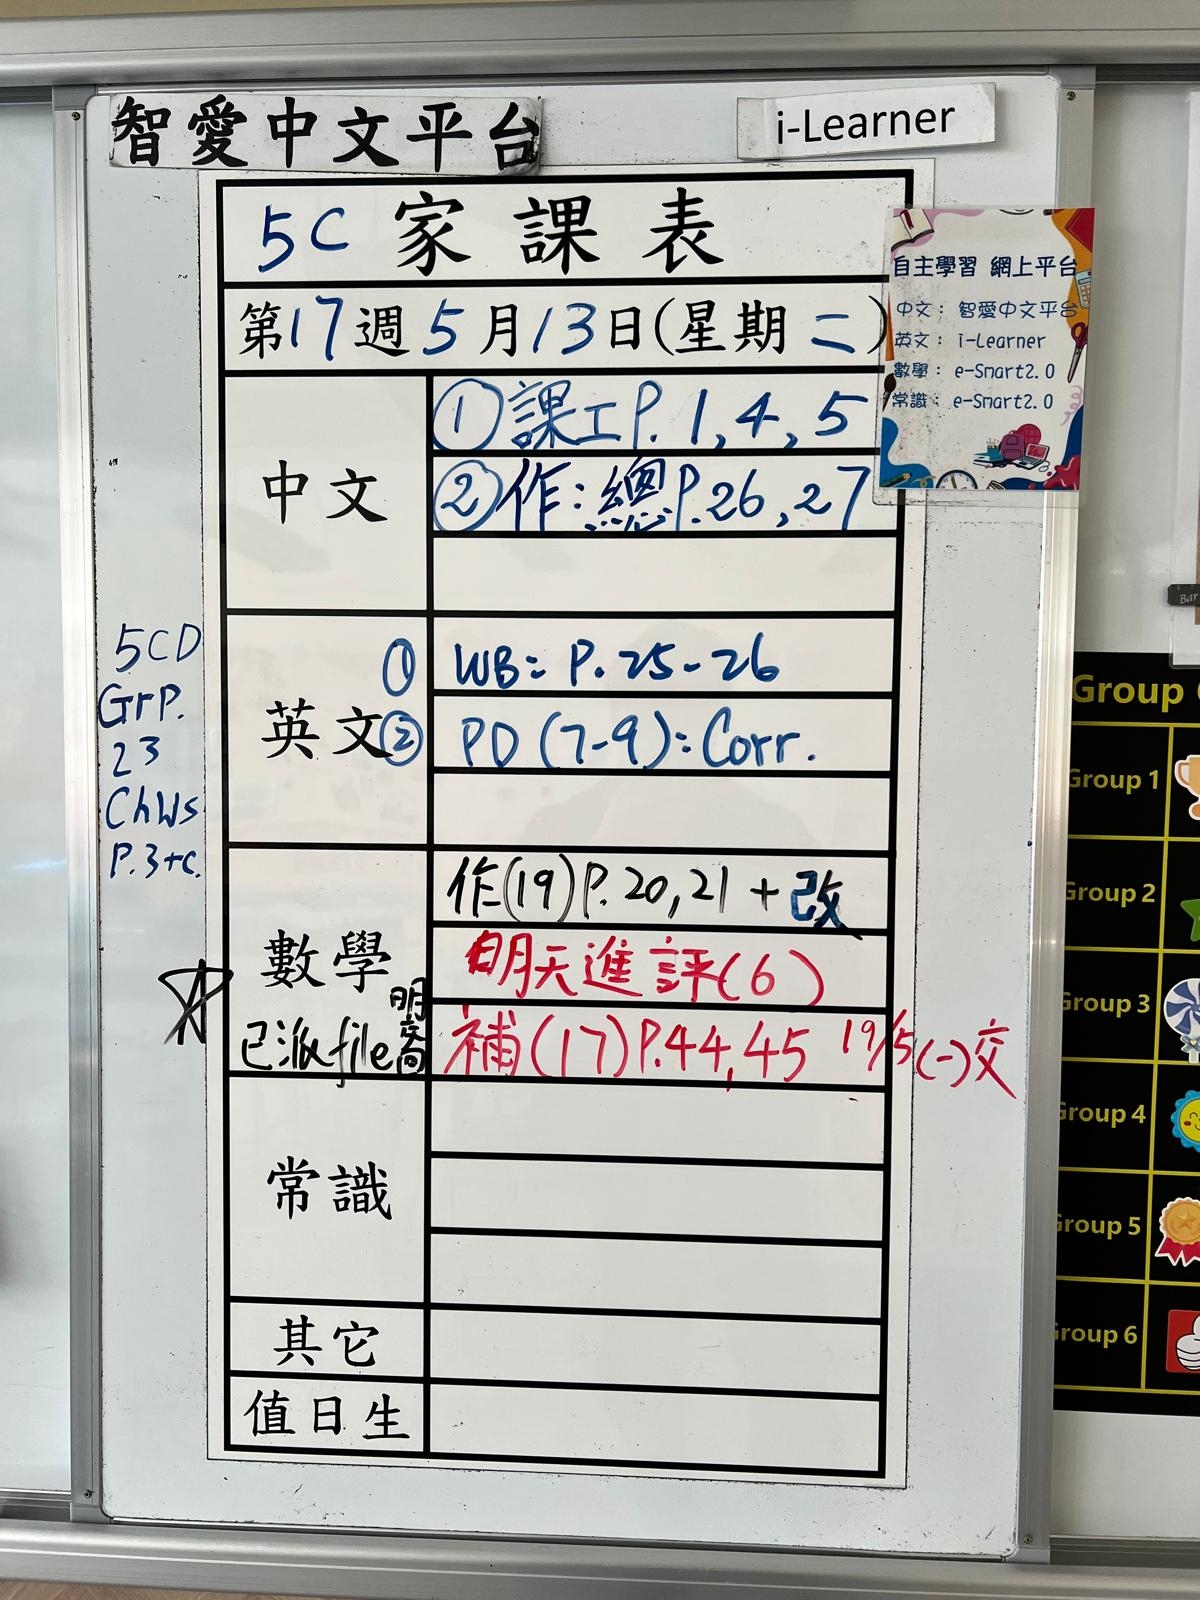 智愛中文平台
i-Learner
5C 家課表
第17週5月13日(星期二)
自主學習 網上平台
中文： 智愛中文平台
英文： i-Learner
數學： e-Smart2.0
常識： e-Smart2.0
中文
①課工P.1,4,5
②作:總P.26,27
英文
① WB: P.25-26
② PD (7-9): Corr.
5CD
GrP.
23
ChWs
P.3+c.
數學
作(19)P.20,21+改
明天進評(6)
已派file 明齊
補(17)P.44,45 19/5(一)交
常識
其它
值日生
Group
Group 1
Group 2
Group 3
Group 4
Group 5
Group 6
Bar